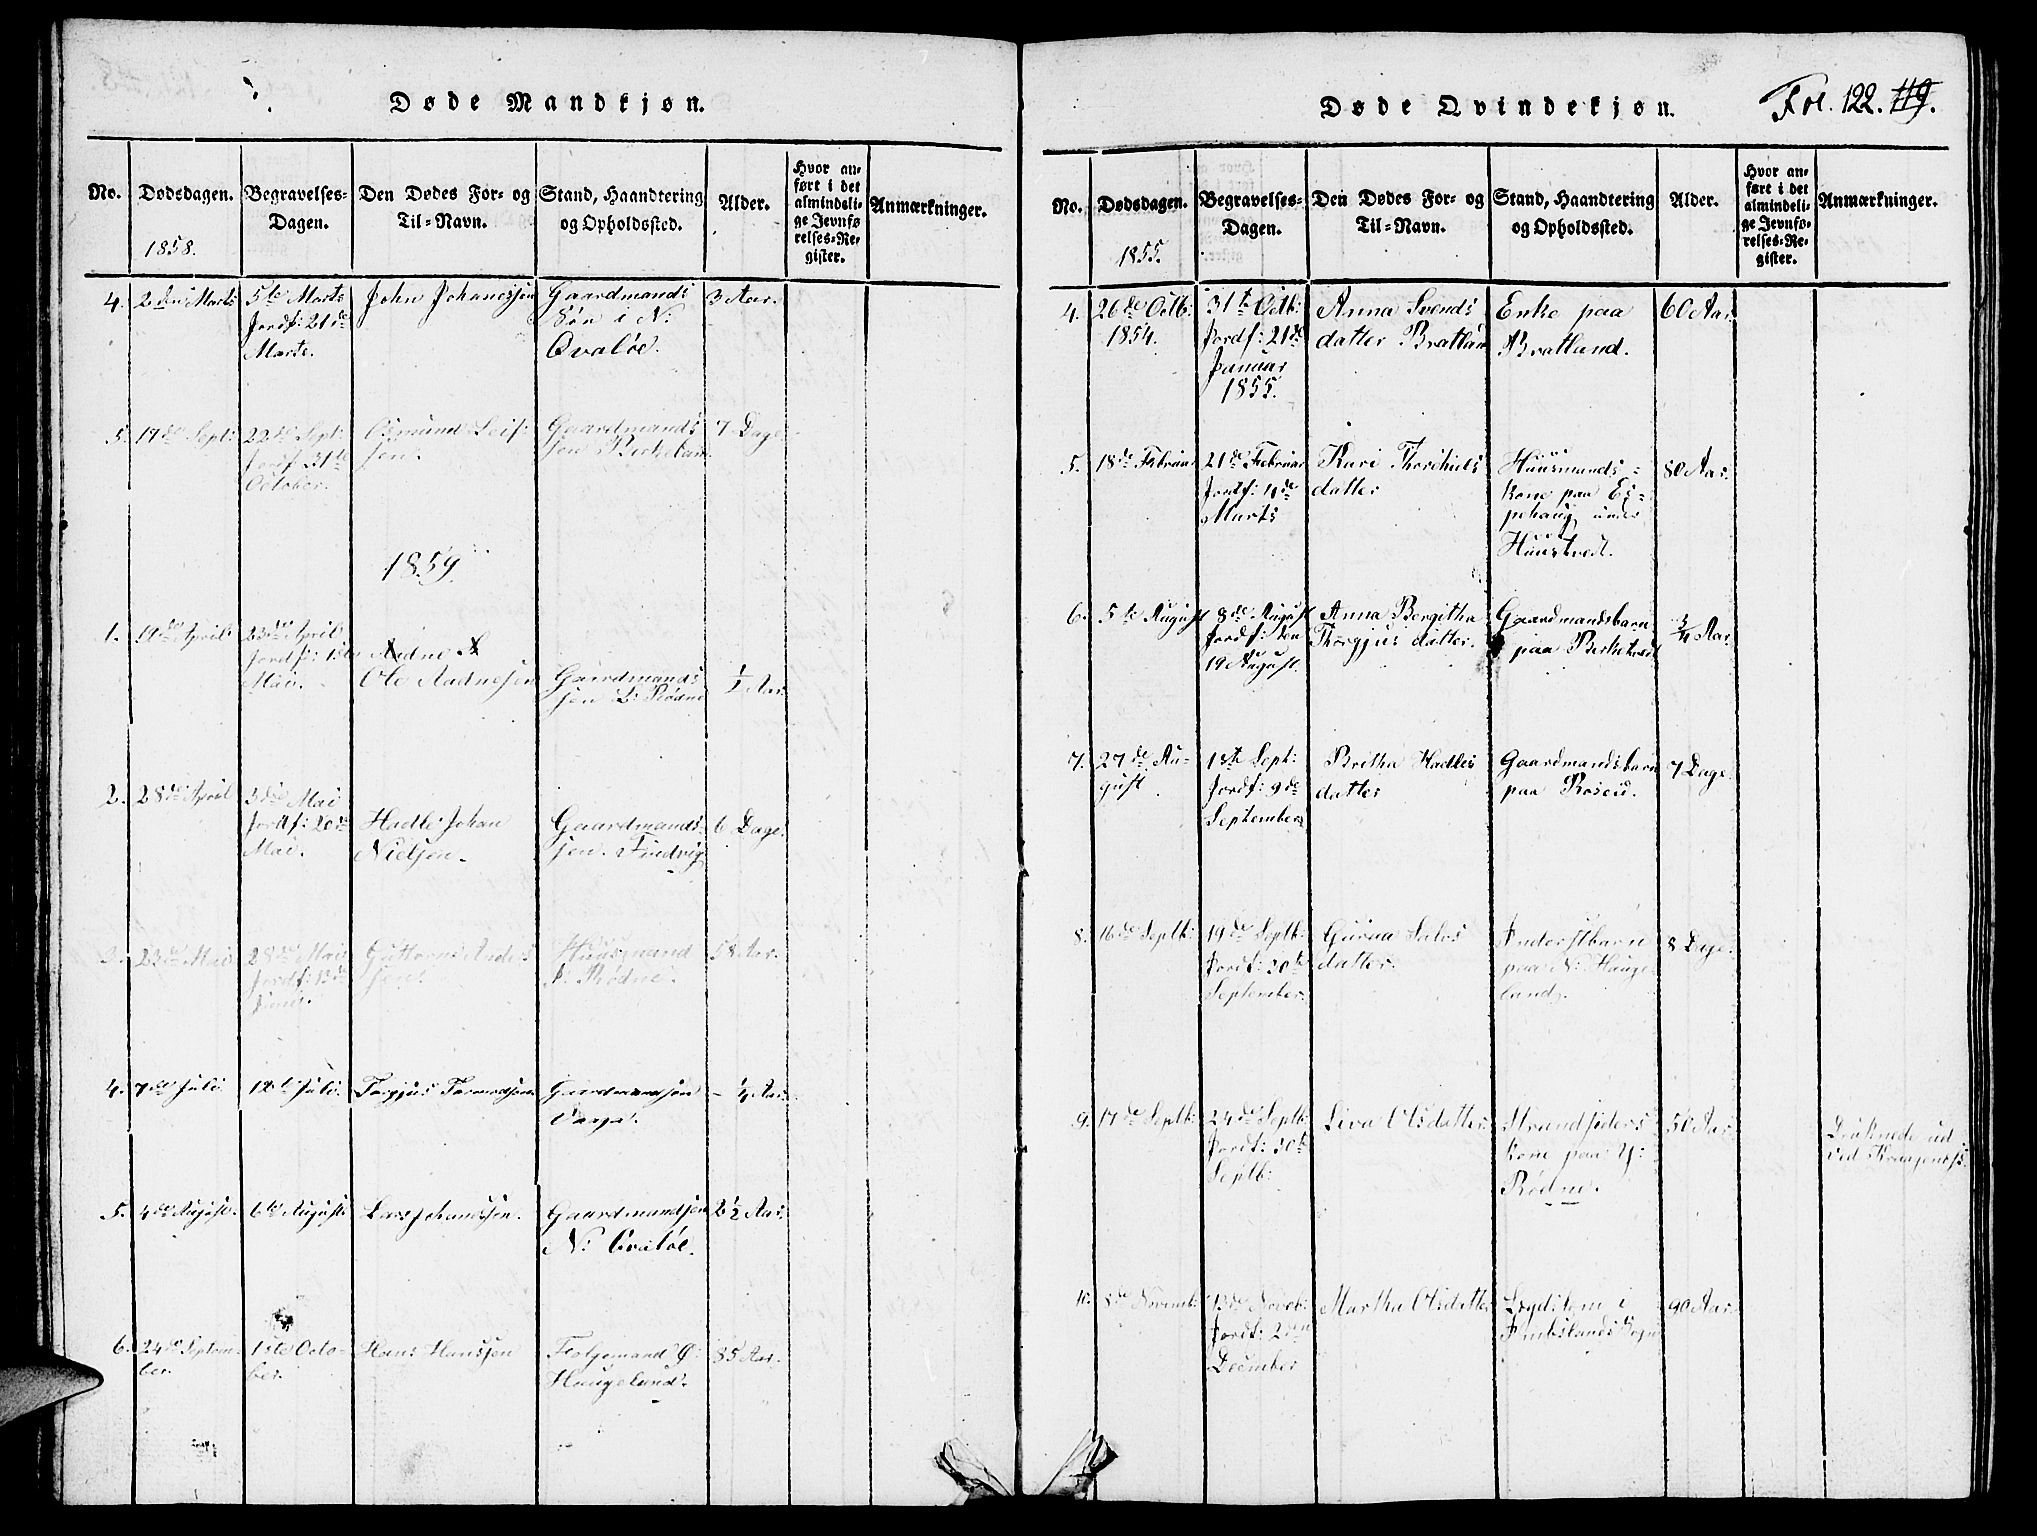 Døde Mandkjøn.
No.
Dødsdagen.
1858.
Begravelses-
Dagen.
Den Dødes For- og
Til-Navn.
Stand, Haandtering
og Opholdssted.
Alder.
Hvor an-
ført i det
almindeli-
ge Jevnfø
relses-Re-
gister.
Anmærkninger.
4.
2den Marts
5te Marts
Jordf: 21de
Marts.
John Johanessen
Gaardmands
Søn i N:
Qvaløe.
3 Aar.
5.
17de Sept:
22de Sept:
Jordf 31te
October.
Osmund Leif-
sen.
Gaardmands
søn Birkeland
7 Dage
1859.
1.
19de April
23de April
Jordf: 1ste
Mai.
Aadne A
Ole Aadnesen
Gaardmands
søn L: Rødne
½ Aar.
2.
28de April
3die Mai
Jordf: 20de
Mai.
Hadle Johan
Nielsen.
Gaardmands-
søn. Tindvig
6 Dage.
3.
23de Mai
28de Mai
Jordf: 13de
Juni.
Guttorm Anders
sen.
Huusmand
Rødne.
58 Aar.
4.
7de Juli
12te Juli.
Torgjus Tormodsen
Gaardmandsøn
Vaga.
¼ Aar.
5.
4de August.
6te August
Lars Johanessen.
Gaardmandsøn
N: Qvaløe.
2½ Aar.
6.
24de Septem-
ber.
1ste Octo-
ber.
Hans Hanssen
Folgemand Ø:
Haugeland.
85 Aar.
Døde Qvindekjøn.
Fol. 122. 119.
No.
Dødsdagen.
1855.
Begravelses-
Dagen.
Den Dødes For- og
Til-Navn.
Stand, Haandtering
og Opholdssted.
Alder.
Hvor an-
ført i det
almindeli-
ge Jevnfø-
relses-Re-
gister.
Anmærkninger.
4.
26de Octb:
1854.
31te Octb:
Jordf: 21de
Januar
1855.
Anna Svends
datter Bratland
Enke paa
Bratland.
60 Aar.
5.
18de Februar
21de Februar
Jordf: 4de
Marts
Kari Thorkiels
datter
Huusmands-
kone paa Es-
pehaug under
Huustvedt.
80 Aar.
6.
5te August
8de August
Jordf: den
19 August.
Anna Bergitha
Thorgjus datter.
Gaardmandsbarn
paa Birketvedt
¾ Aar.
7.
27de Au-
gust
1ste Sept:
Jordf: 9de
September
Britha Hadles
datter
Gaardmandsbarn
paa Røseid.
7 Dage.
8.
16de Septb:
19de Septb:
Jordf: 30te
September.
Guroa Salos
datter.
Inderstbarn
paa N: Hauge
land.
8 Dage.
9.
17de Septb:
24de Septb:
Jordf: 30te
Septb:
Siva Olsdatter.
Strandsiders
kone paa Y:
Rødne.
50 Aar.
Druknede ud
ved
10.
8de Novemb:
13de Novb:
Jordf: 2den
December
Martha Olsdatter
Lægdslem i
Imbslands Sogn
90 Aar.